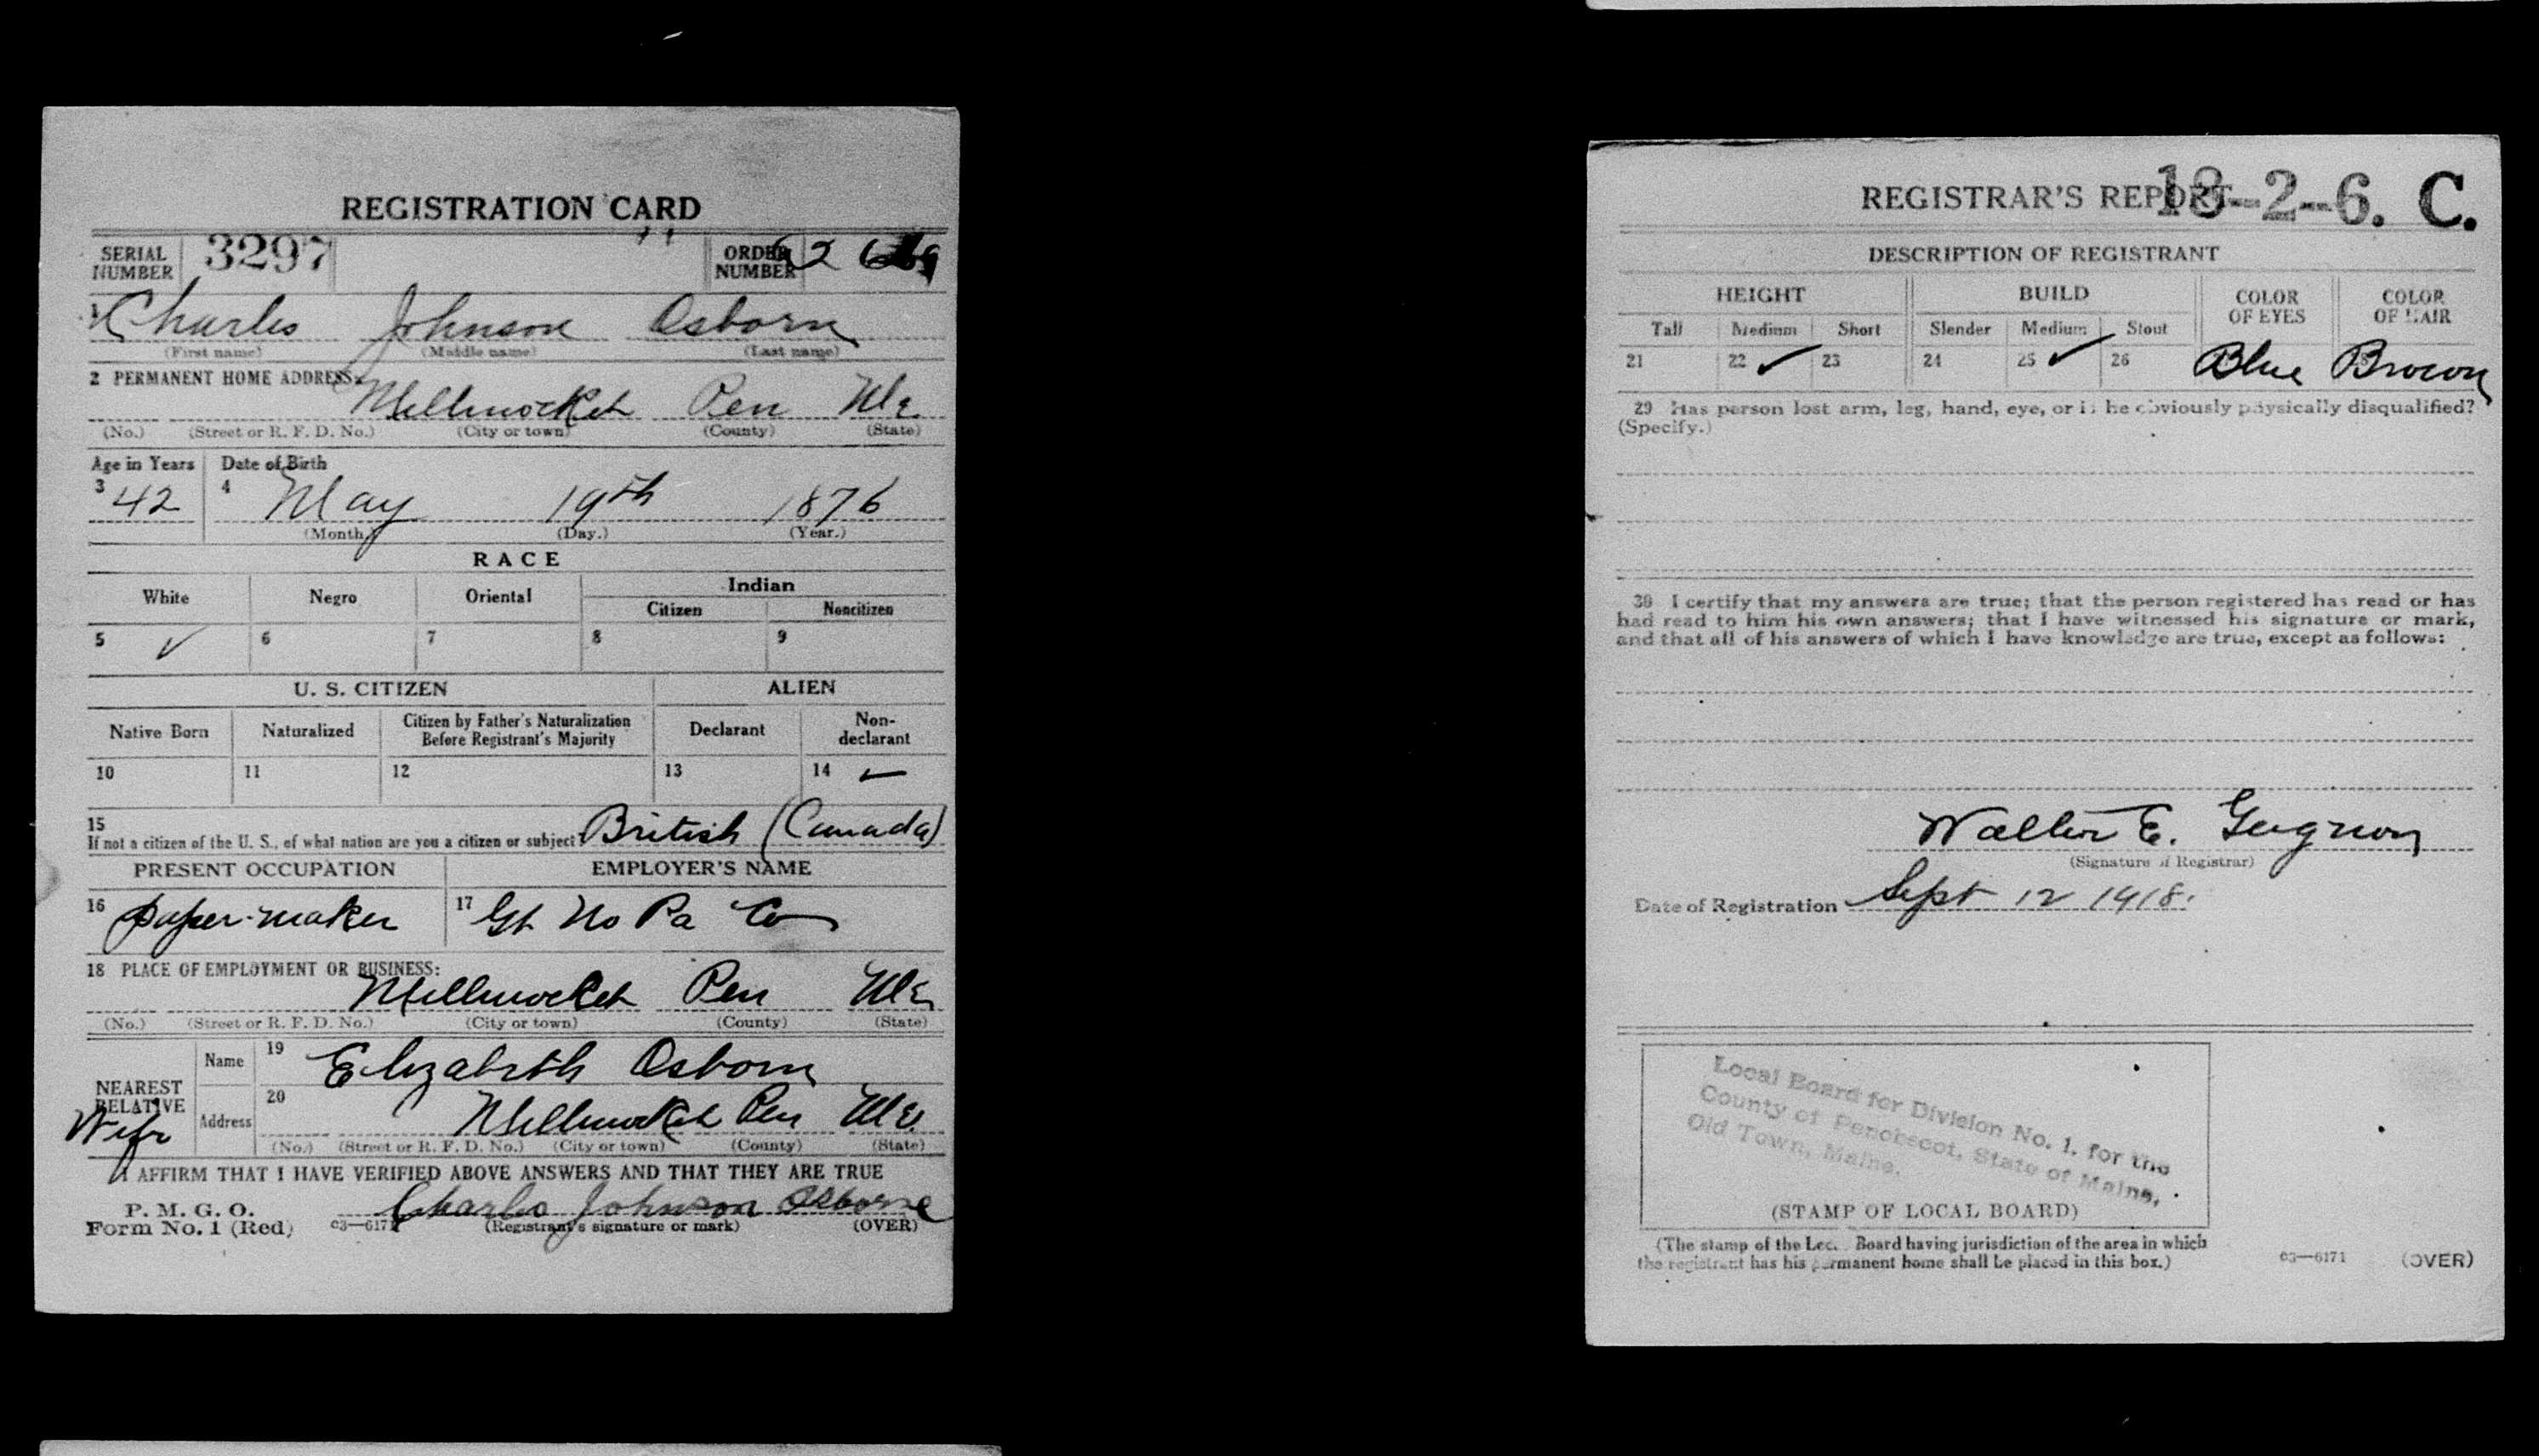 REGISTRATION CARD
SERIAL NUMBER 3297 ORDER NUMBER
1 Charles Johnson Osborn
(First name) (Middle name) (Last name)
2 PERMANENT HOME ADDRESS:
Millinocket Pen Me
(No.) (Street or R. F. D. No.) (City or town) (County) (State)
Age in Years Date of Birth
3 42 4 May 19th 1876
(Month.) (Day.) (Year.)
RACE
White Negro Oriental Indian
Citizen Noncitizen
5 ✓ 6 7 8 9
U. S. CITIZEN ALIEN
Native Born Naturalized Citizen by Father's Naturalization Before Registrant's Majority Declarant Non-declarant
10 11 12 13 14 ✓
15
If not a citizen of the U. S., of what nation are you a citizen or subject? British (Canada)
PRESENT OCCUPATION EMPLOYER'S NAME
16 paper-maker 17 Gt No Pa Co
18 PLACE OF EMPLOYMENT OR BUSINESS:
Millinocket Pen Me
(No.) (Street or R. F. D. No.) (City or town) (County) (State)
NEAREST RELATIVE Name 19 Elizabeth Osborn
Wife Address 20 Millinocket Pen Me.
(No.) (Street or R. F. D. No.) (City or town) (County) (State)
I AFFIRM THAT I HAVE VERIFIED ABOVE ANSWERS AND THAT THEY ARE TRUE
P. M. G. O.
Form No. 1 (Red) 03—6171 Charles Johnson Osborne
(Registrant's signature or mark) (OVER)
REGISTRAR'S REPORT 18-2-6. C.
DESCRIPTION OF REGISTRANT
HEIGHT BUILD COLOR OF EYES COLOR OF HAIR
Tall Medium Short Slender Medium Stout
21 22 ✓ 23 24 25 ✓ 26 Blue Brown
29 Has person lost arm, leg, hand, eye, or is he obviously physically disqualified?
(Specify.)
30 I certify that my answers are true; that the person registered has read or has
had read to him his own answers; that I have witnessed his signature or mark,
and that all of his answers of which I have knowledge are true, except as follows:
Walter E.
(Signature of Registrar)
Date of Registration Sept 12 1918.
Local Board for Division No. 1, for the
County of Penobscot, State of Maine,
Old Town, Maine.
(STAMP OF LOCAL BOARD)
(The stamp of the Local Board having jurisdiction of the area in which
the registrant has his permanent home shall be placed in this box.)
03—6171 (OVER)